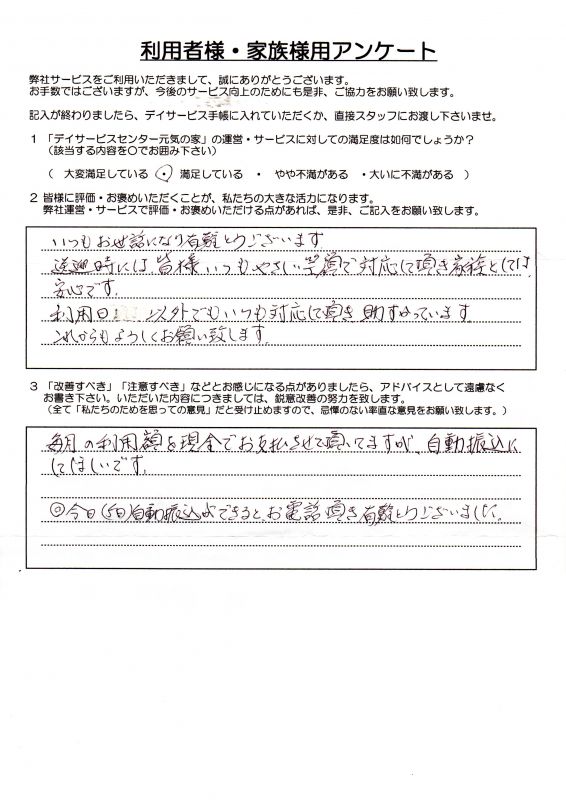 利用者様・家族様用アンケート
弊社サービスをご利用いただきまして、誠にありがとうございます。
お手数ではございますが、今後のサービス向上のためにも是非、ご協力をお願い致します。
記入が終わりましたら、デイサービス手帳に入れていただくか、直接スタッフにお渡し下さいませ。
1 「デイサービスセンター元気の家」の運営・サービスに対しての満足度は如何でしょうか?
(該当する内容を〇でお囲み下さい)
( 大変満足している ・ 満足している ・ やや不満がある ・大いに不満がある )
2 皆様に評価・お褒めいただくことが、私たちの大きな活力になります。
弊社運営・サービスで評価・お褒めいただける点があれば、是非、ご記入をお願い致します。
いつもお世話になり有難とうございます
送迎時には皆様いつもやさしい笑顔で対応して頂き家族としては、
安心です。
利用日 以外でもいつも対応して頂き助すかっています
これからもよろしくお願い致します。
3 「改善すべき」「注意すべき」などとお感じになる点がありましたら、アドバイスとして遠慮なく
お書き下さい。いただいた内容につきましては、鋭意改善の努力を致します。
(全て「私たちのためを思っての意見」だと受け止めますので、忌憚のない率直な意見をお願い致します。)
毎月の利用額を現金でお支払させて頂いてますが、自動振込に
してほしいです。
◎今日(5日)自動振込ができるとお電話頂き有難とうございました。